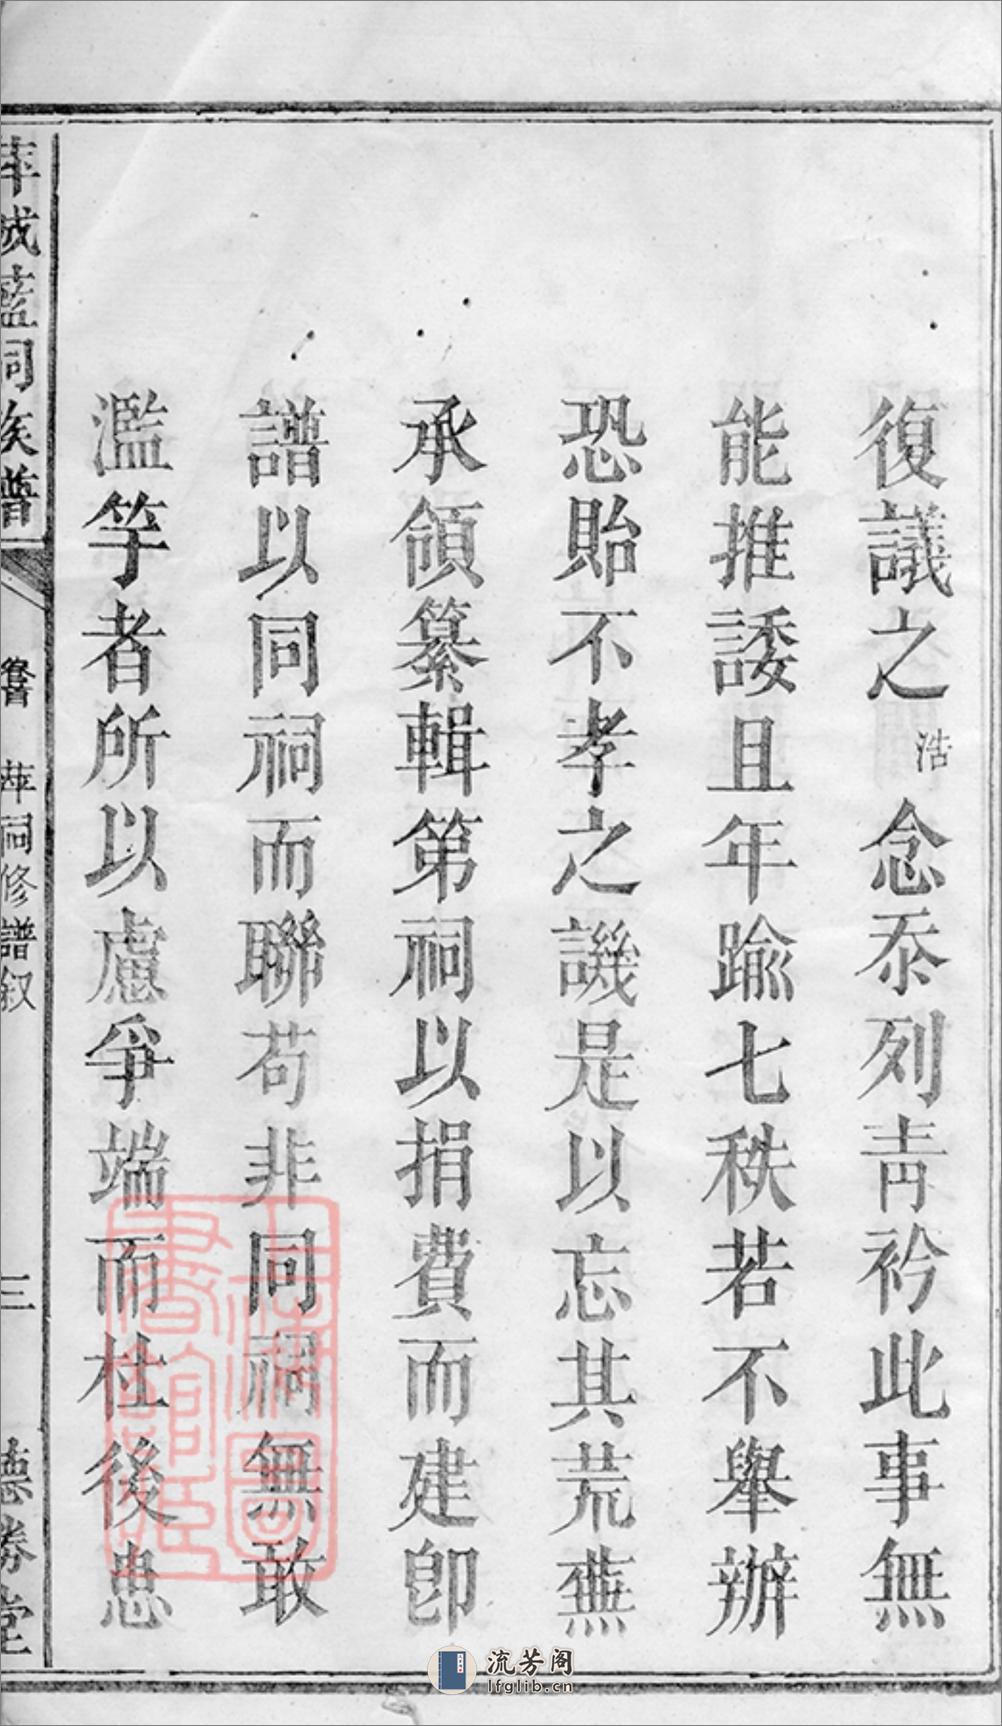 復議之浩念忝列青衿此事無
能推諉且年踰七秩若不舉辦
恐貽不孝之譏是以忘其荒蕪
承領纂輯第祠以捐費而建卽
譜以同祠而聯苟非同祠無敢
濫竽者所以慮爭端而杜後患
萍城藍祠族譜
卷首 萍祠修譜叙 三 德勝堂
上海圖書館藏
流芳阁
lfglib.cn